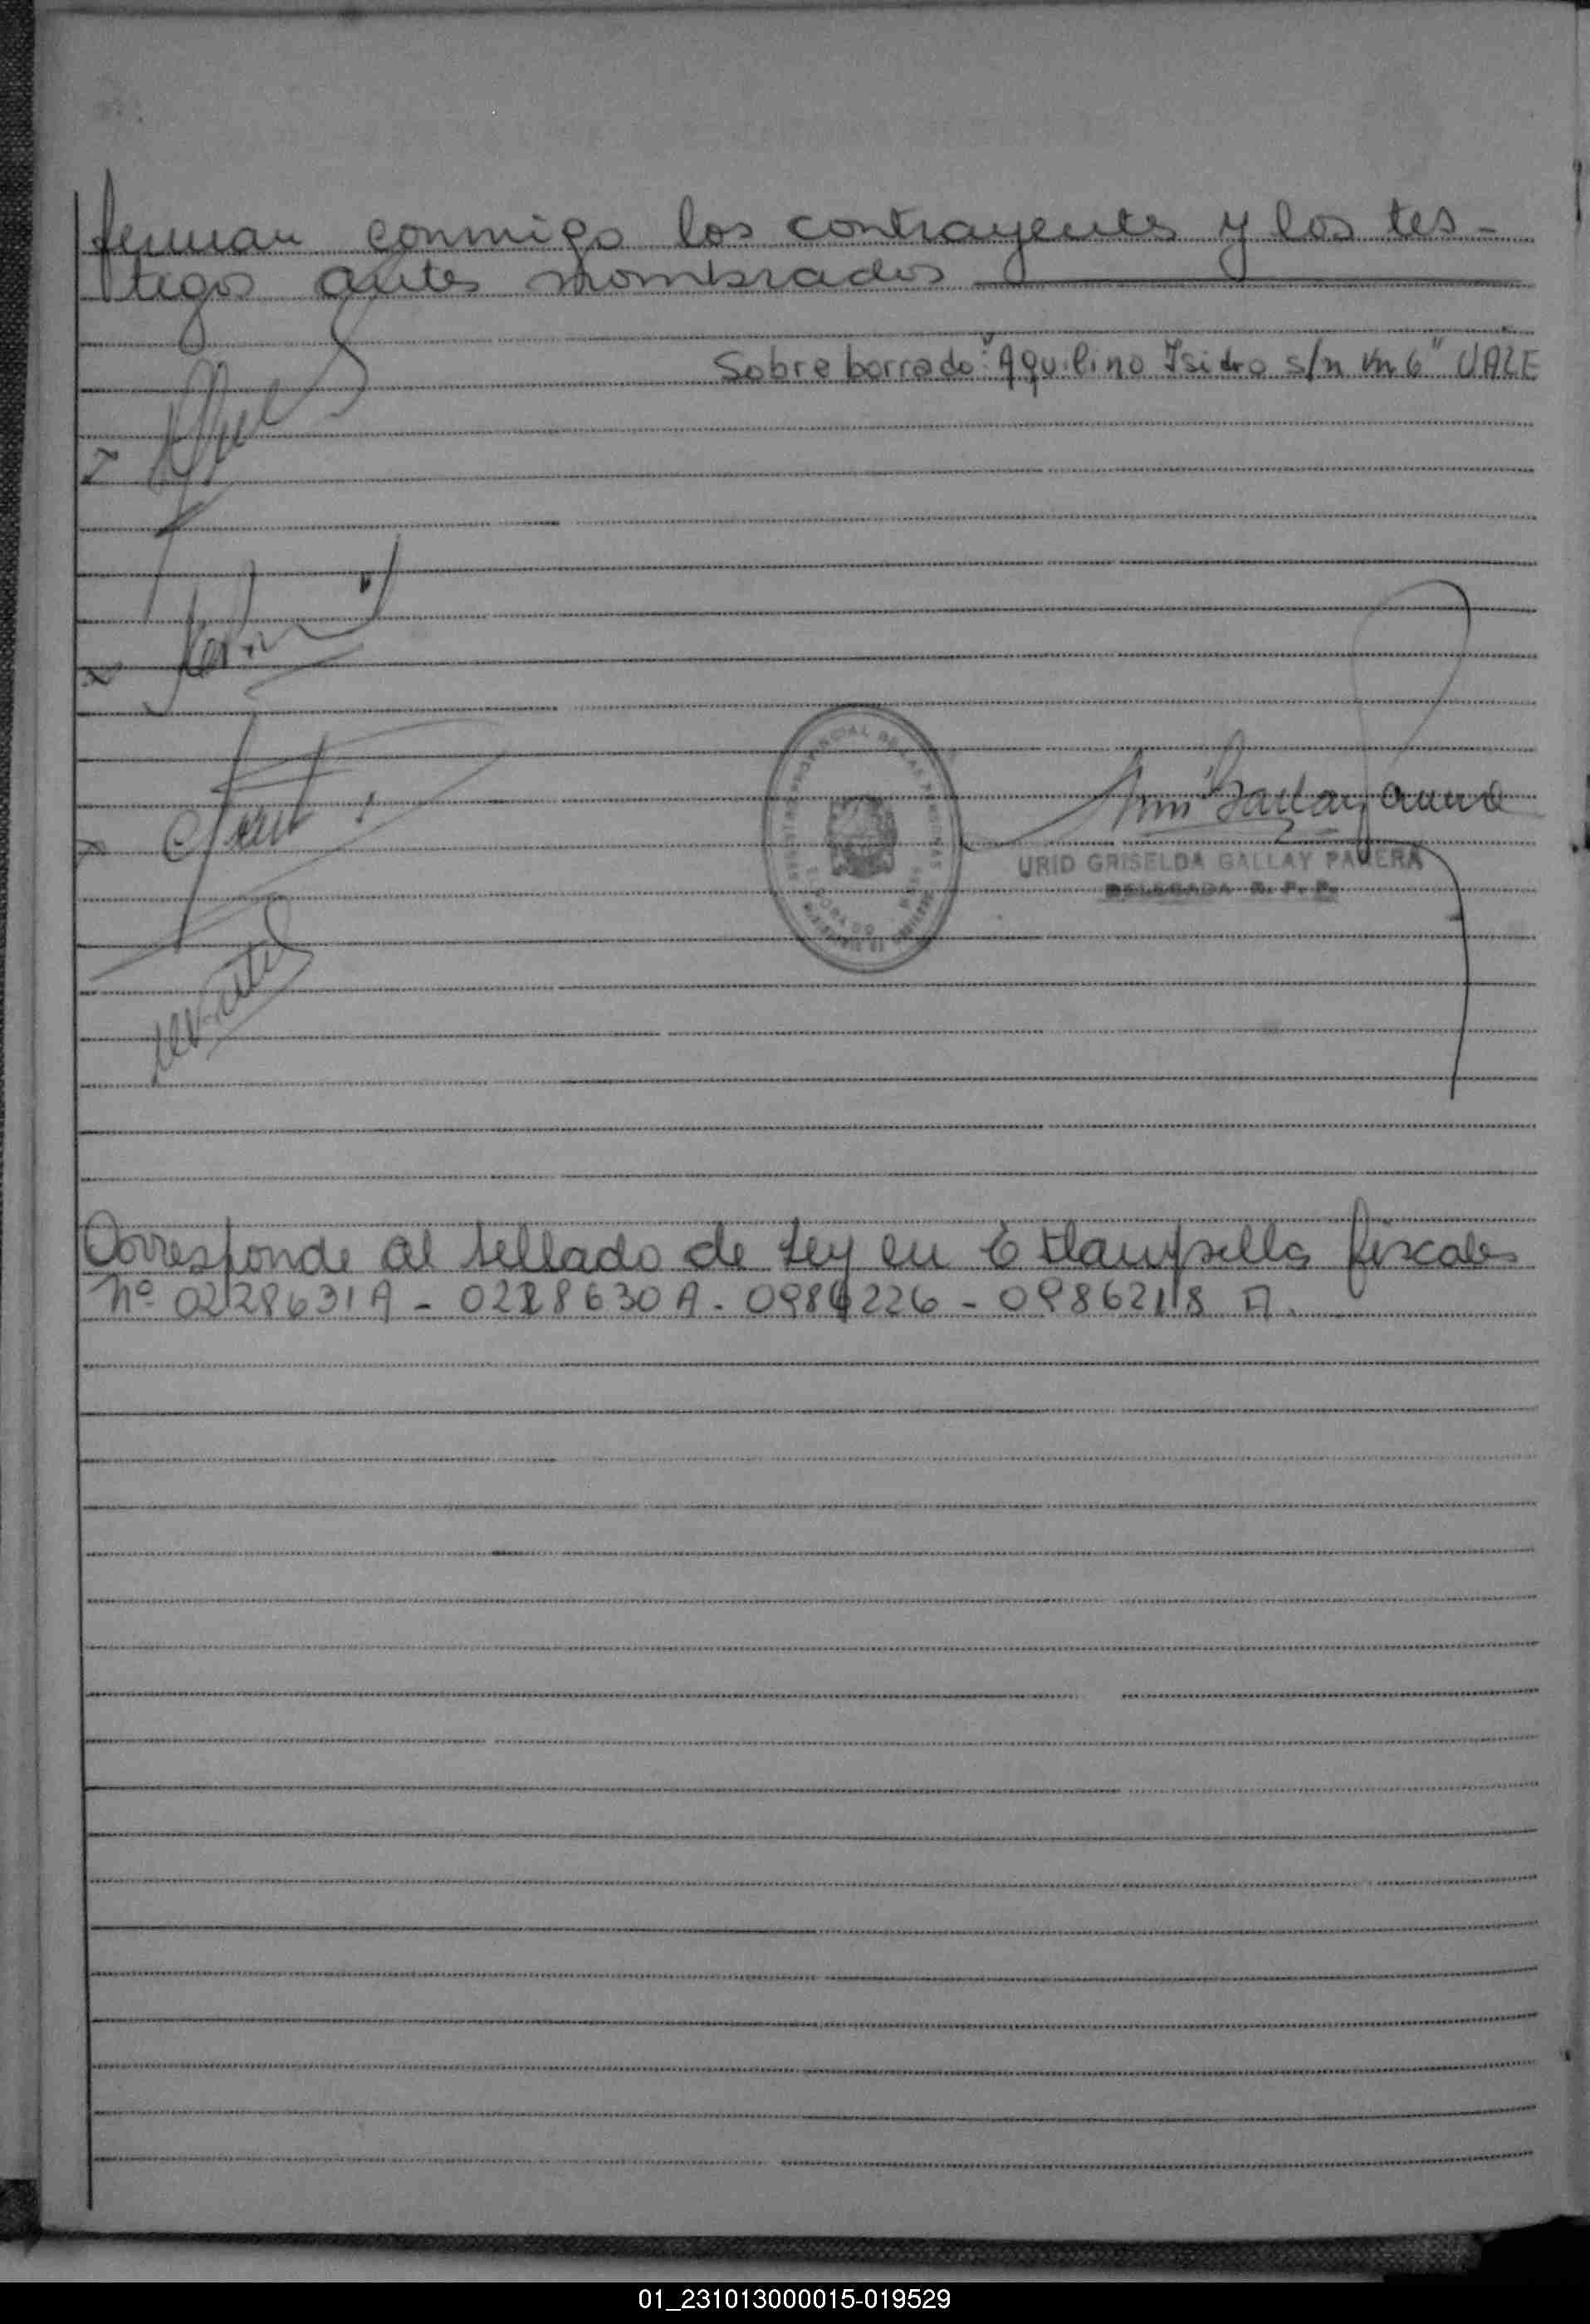 firman conmigo los contrayentes y los tes-
tigos antes nombrados
Sobre borrado: "Aquilino Isidro s/n Km 6" VALE
URID GRISELDA GALLAY PANERA
DELEGADA R. P. P.
Corresponde al sellado de Ley en 6 Estampillas fiscales
Nº 0228631A - 0228630A - 0986226 - 0986218 A.
01_231013000015-019529